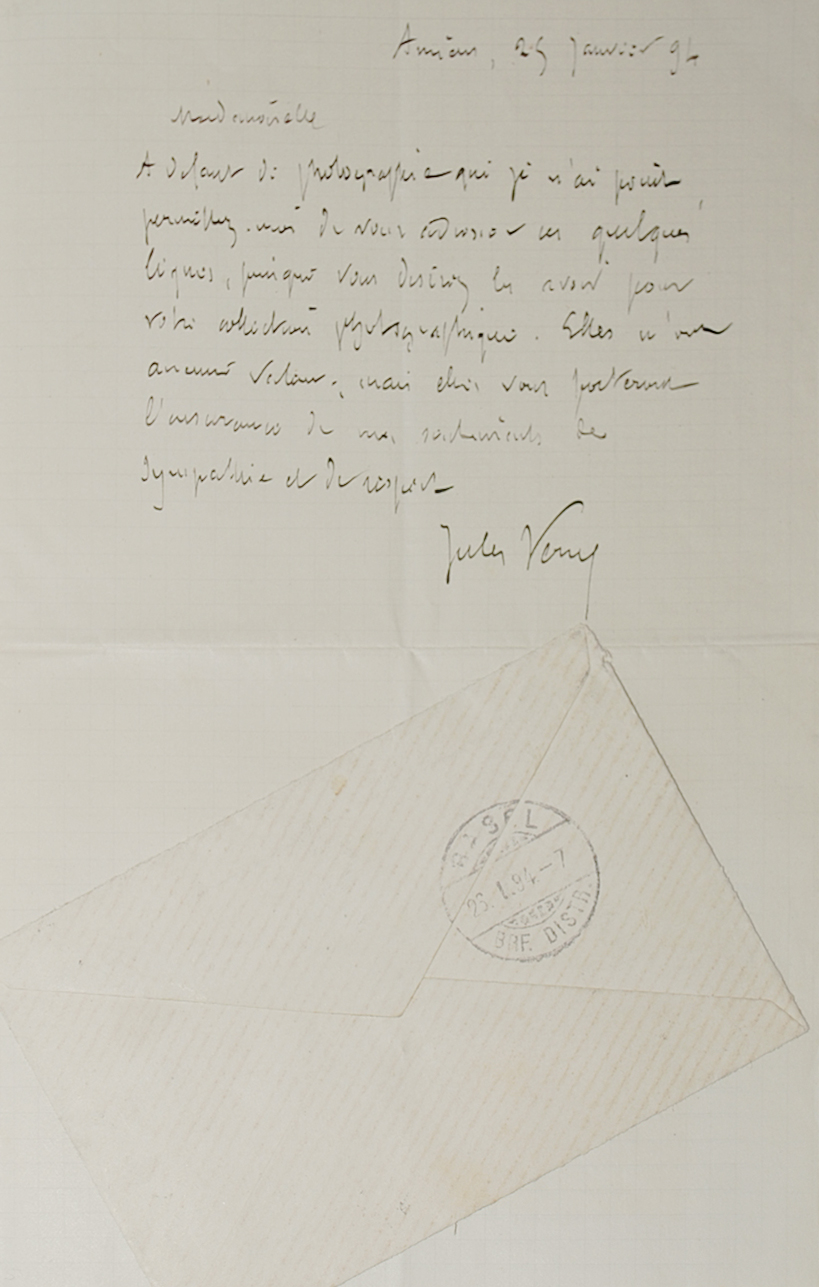 Amiens, 25 Janvier 94
Mademoiselle
A défaut de photographie que je n'ai point,
permettez-moi de vous adresser ces quelques
lignes, puisque vous désirez les avoir pour
votre collection photographique. Elles n'ont
aucune valeur, mais elles vous porteront
l'assurance de mes sentiments de
sympathie et de respect
Jules Verne
BASEL
26.I.94.-7
BRF. DISTR.